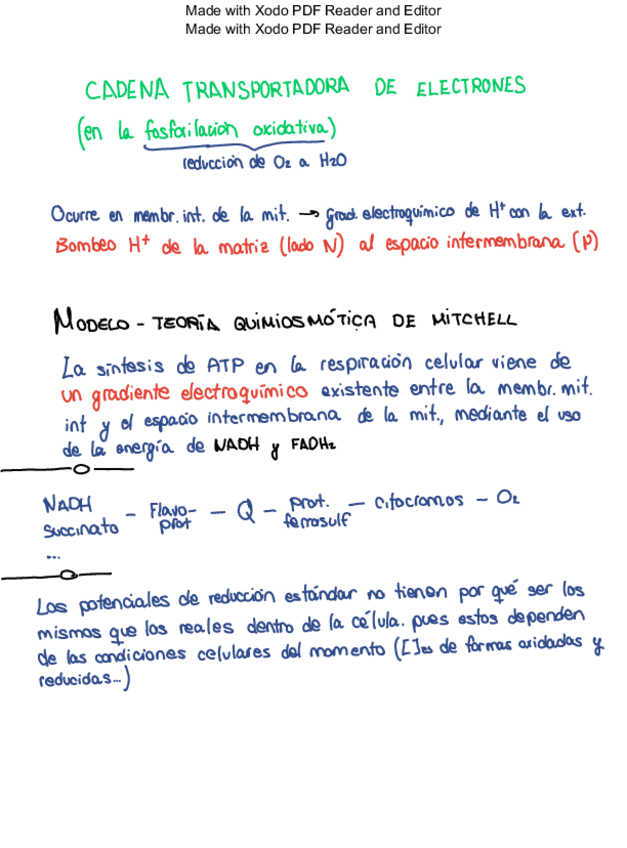 Made with Xodo PDF Reader and Editor
Made with Xodo PDF Reader and Editor
CADENA TRANSPORTADORA DE ELECTRONES
(en la fosforilación oxidativa)
reducción de O2 a H2O
Ocurre en membr. int. de la mit. → grad. electroquímico de H+ con la ext.
Bombeo H+ de la matriz (lado N) al espacio intermembrana (P)
MODELO - TEORÍA QUIMIOSMÓTICA DE MITCHELL
La síntesis de ATP en la respiración celular viene de
un gradiente electroquímico existente entre la membr. mit.
int y el espacio intermembrana de la mit., mediante el uso
de la energía de NADH y FADH2
NADH
Succinato - Flavo-prot - Q - prot. ferrosulf - citocromos - O2
...
Los potenciales de reducción estándar no tienen por qué ser los
mismos que los reales dentro de la célula. pues estos dependen
de las condiciones celulares del momento ([]es de formas oxidadas y
reducidas...)